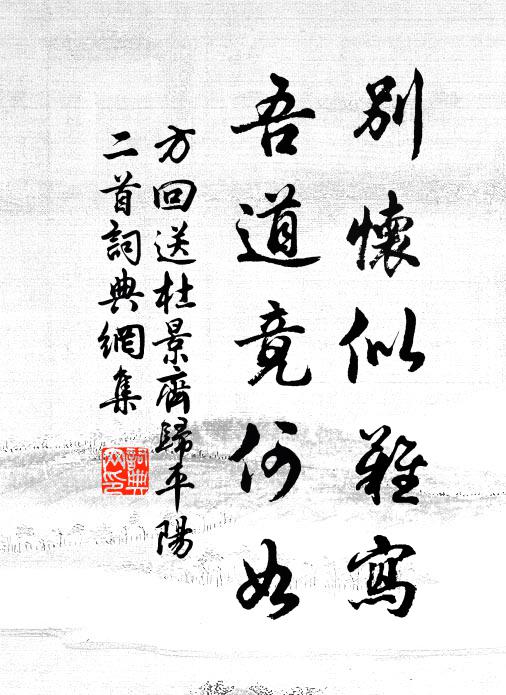 別懷似難寫
吾道竟何如
方回送杜景齊歸平陽
二首詞典網集
詞典網印